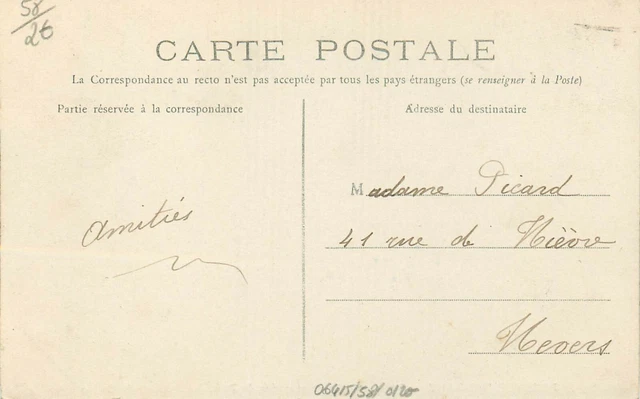 58
26
CARTE POSTALE
La Correspondance au recto n'est pas acceptée par tous les pays étrangers (se renseigner à la Poste)
Partie réservée à la correspondance
Adresse du destinataire
Madame Picard
Amitiés
41 rue de Nièvre
Nevers